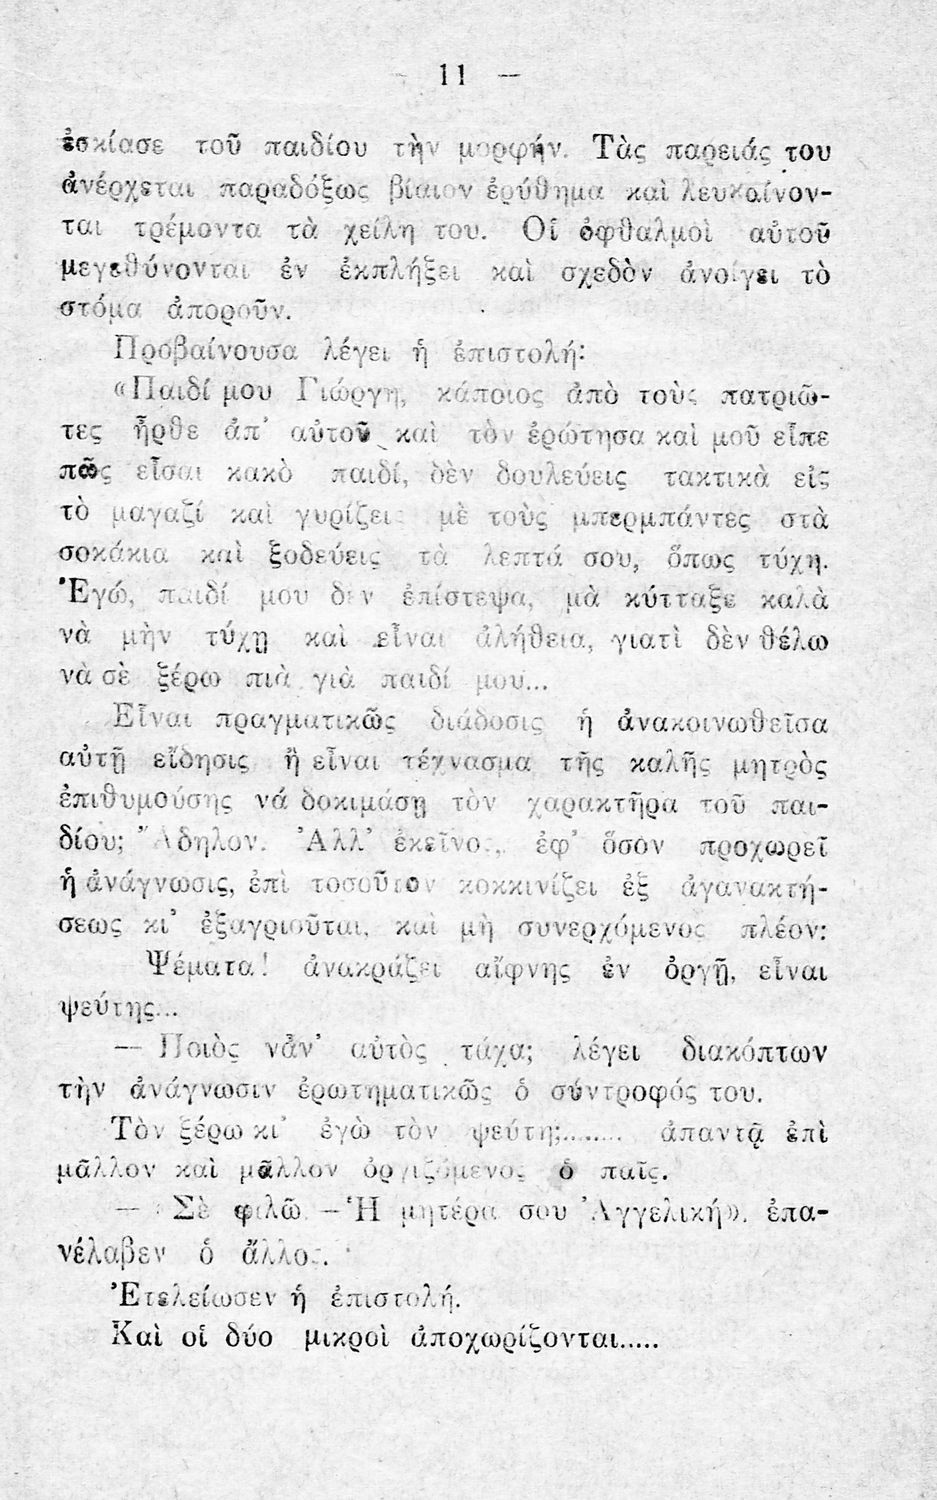 — 11 —
ἐσκίασε τοῦ παιδίου τὴν μορφήν. Τὰς παρειάς του
ἀνέρχεται παραδόξως βίαιον ἐρύθημα καὶ λευκαίνον-
ται τρέμοντα τὰ χείλη του. Οἱ ὀφθαλμοὶ αὐτοῦ
μεγεθύνονται ἐν ἐκπλήξει καὶ σχεδὸν ἀνοίγει τὸ
στόμα ἀποροῦν.
Προβαίνουσα λέγει ἡ ἐπιστολή:
«Παιδί μου Γιώργη, κάποιος ἀπὸ τοὺς πατριῶ-
τες ἦρθε ἀπ' αὐτοῦ καὶ τὸν ἐρώτησα καὶ μοῦ εἶπε
πῶς εἶσαι κακὸ παιδί, δὲν δουλεύεις τακτικὰ εἰς
τὸ μαγαζί καὶ γυρίζεις μὲ τοὺς μπερμπάντες στὰ
σοκάκια καὶ ξοδεύεις τὰ λεπτά σου, ὅπως τύχῃ.
Ἐγώ, παιδί μου δὲν ἐπίστεψα, μὰ κύτταξε καλὰ
νὰ μὴν τύχῃ καὶ εἶναι ἀλήθεια, γιατὶ δὲν θέλω
νὰ σὲ ξέρω πιὰ γιὰ παιδί μου...
Εἶναι πραγματικῶς διάδοσις ἡ ἀνακοινωθεῖσα
αὐτῇ εἴδησις ἢ εἶναι τέχνασμα τῆς καλῆς μητρὸς
ἐπιθυμούσης νά δοκιμάσῃ τὸν χαρακτῆρα τοῦ παι-
δίου; Ἄδηλον. Ἀλλ' ἐκεῖνος, ἐφ' ὅσον προχωρεῖ
ἡ ἀνάγνωσις, ἐπὶ τοσοῦτον κοκκινίζει ἐξ ἀγανακτή-
σεως κι' ἐξαγριοῦται, καὶ μὴ συνερχόμενος πλέον:
Ψέματα! ἀνακράζει αἴφνης ἐν ὀργῇ, εἶναι
ψεύτης...
— Ποιὸς νἆν' αὐτὸς τάχα; λέγει διακόπτων
τὴν ἀνάγνωσιν ἐρωτηματικῶς ὁ σύντροφός του.
Τὸν ξέρω κι' ἐγὼ τὸν ψεύτη;....... ἀπαντᾷ ἐπὶ
μᾶλλον καὶ μᾶλλον ὀργιζόμενος ὁ παῖς.
— Σὲ φιλῶ. – Ἡ μητέρα σου Ἀγγελική». ἐπα-
νέλαβεν ὁ ἄλλος.
Ἐτελείωσεν ἡ ἐπιστολή.
Καὶ οἱ δύο μικροὶ ἀποχωρίζονται.....